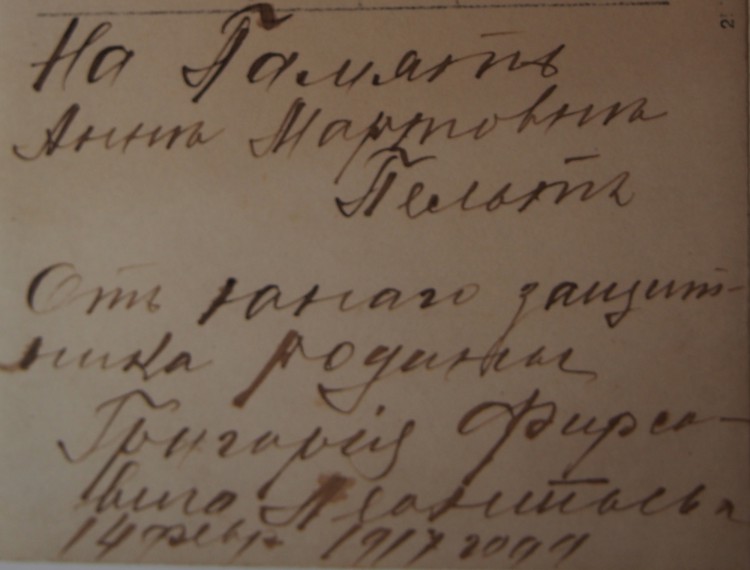 На Память
Аннѣ Мартовнѣ
Пельтъ
Отъ юнаго защит-
ника родины
Григорія Фирсо-
вича Леонтьева
14 февр 1917 года